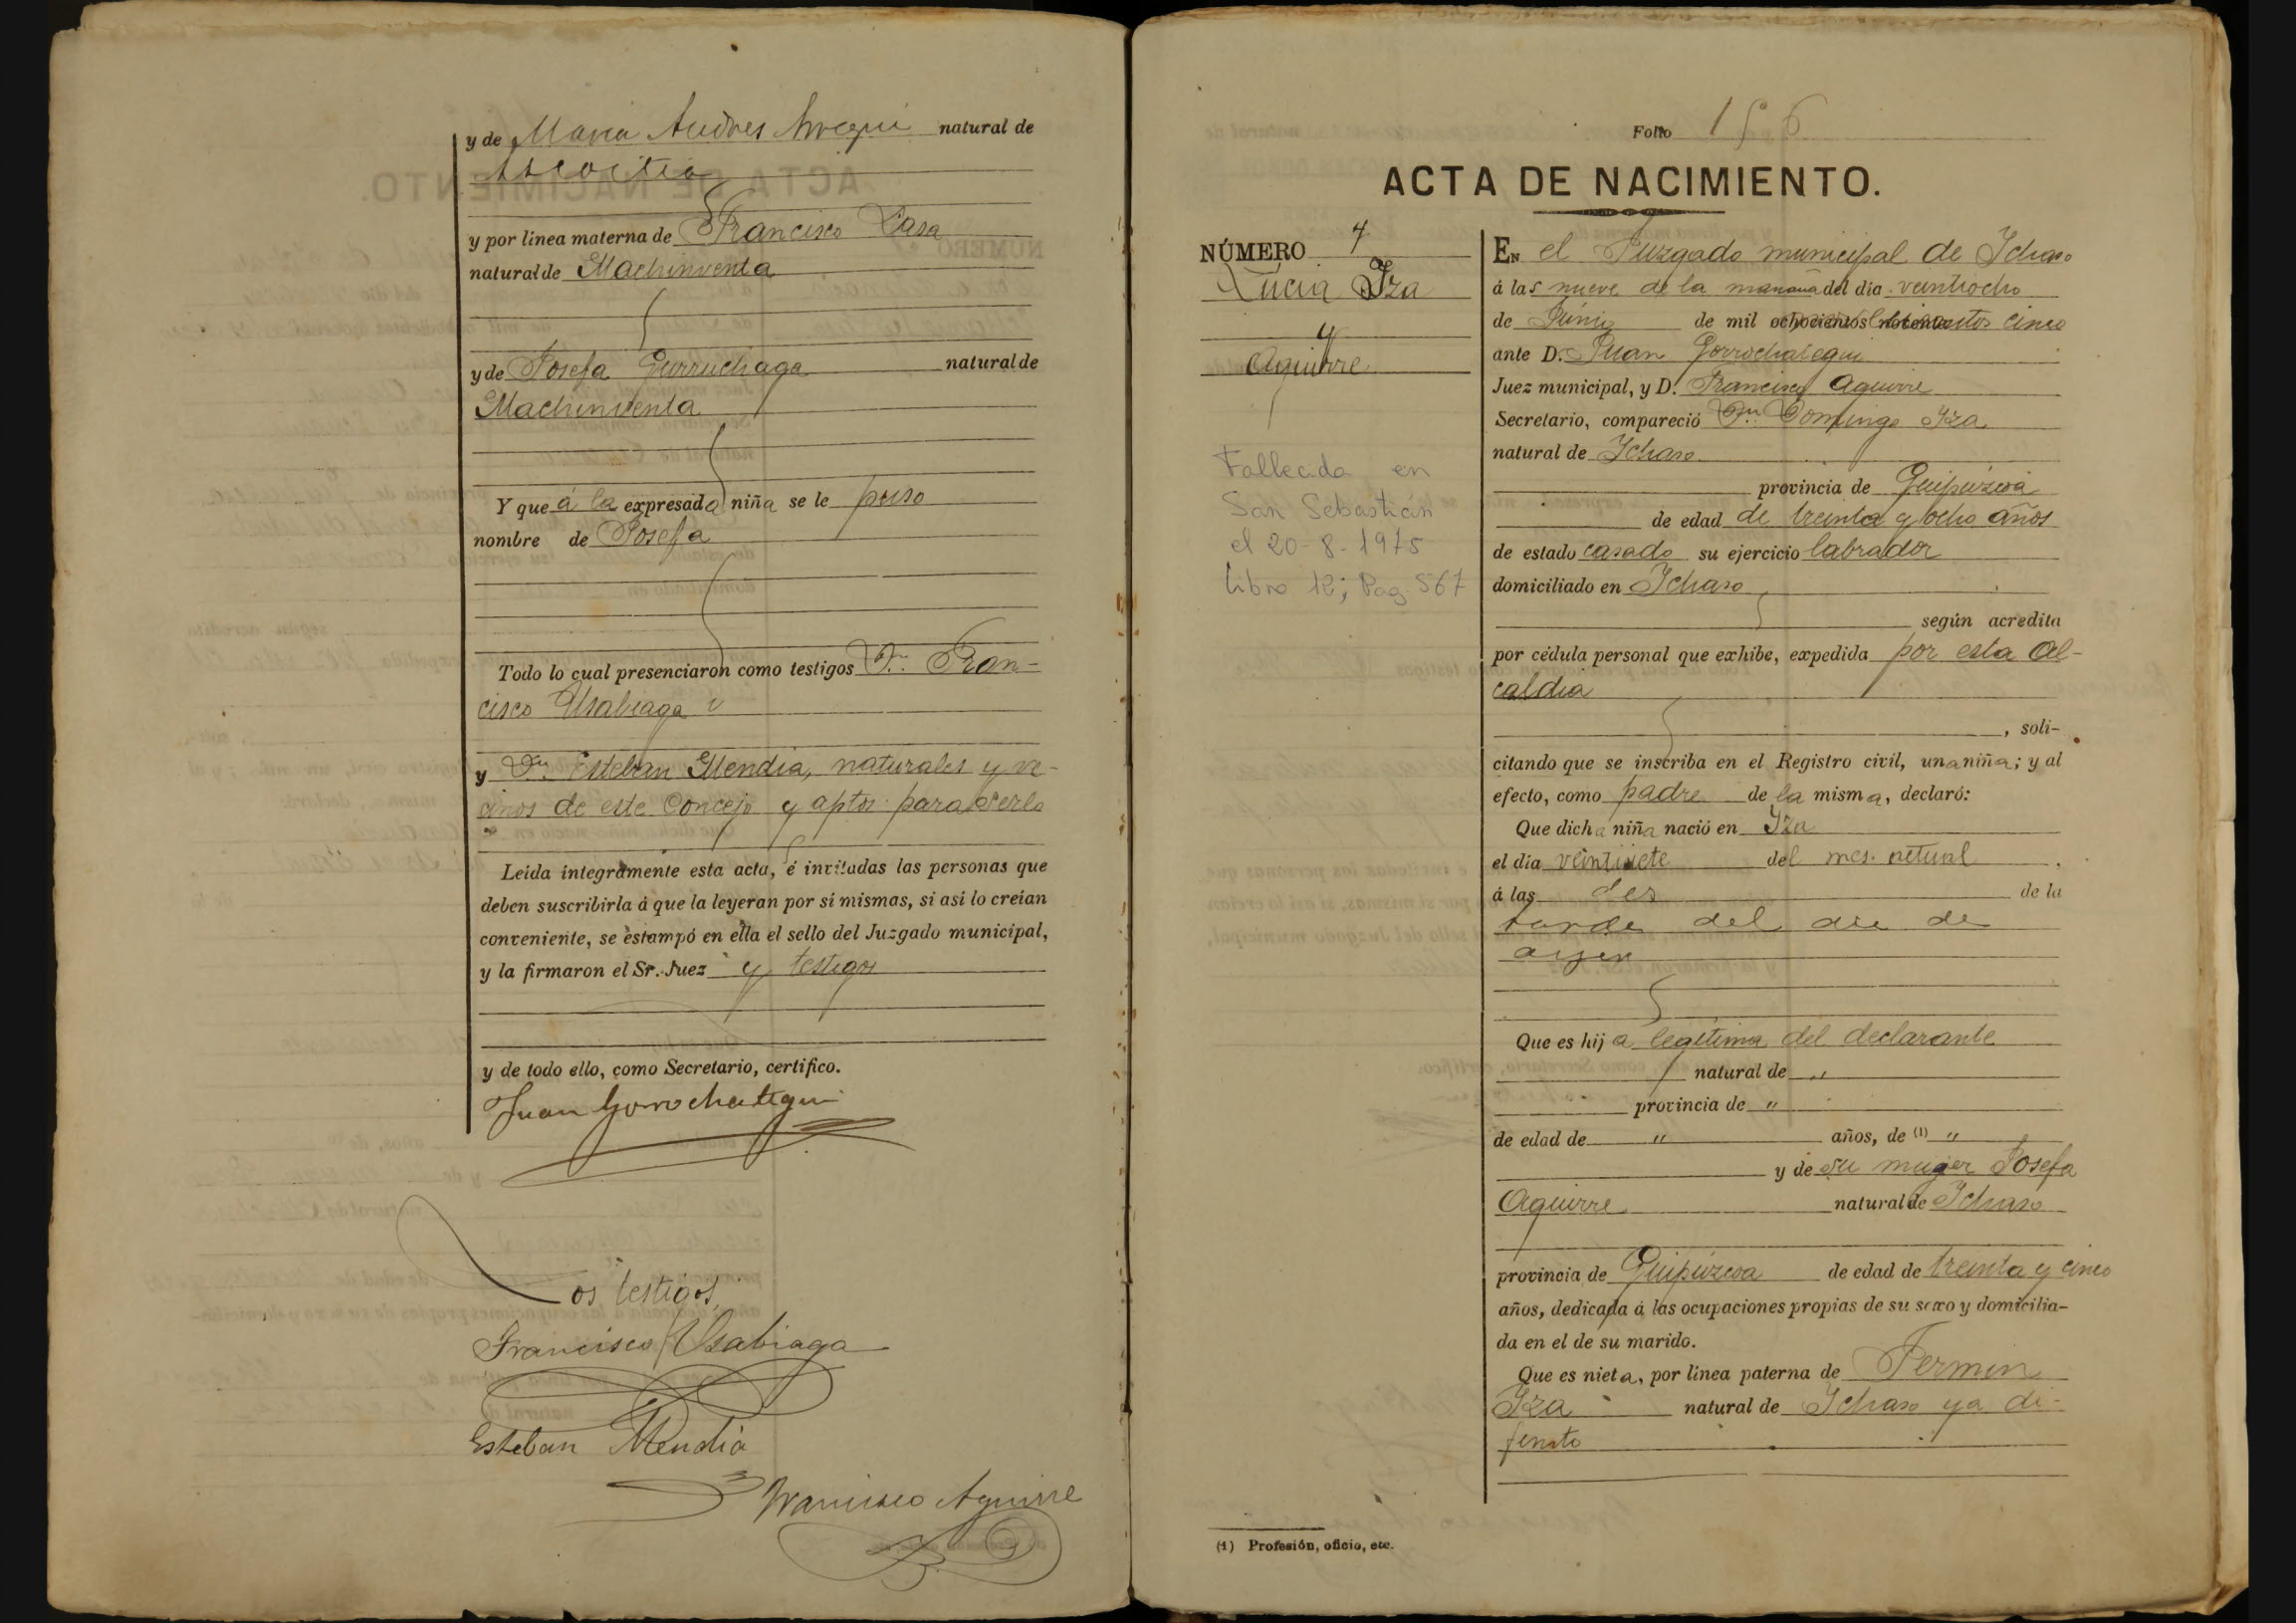 y de Maria Andres Aroegui natural de
Ascoitia
y por línea materna de Francisco Lasa
natural de Machinventa
y de Josefa Gurruchaga natural de
Machinventa
Y que á la expresada niña se le puso
nombre de Josefa
Todo lo cual presenciaron como testigos Dn. Fran-
cisco Usabiaga
y Dn. Esteban Mendia, naturales y ve-
cinos de este Concejo y aptos para serlo
Leída íntegramente esta acta, é invitadas las personas que
deben suscribirla á que la leyeran por sí mismas, si así lo creían
conveniente, se estampó en ella el sello del Juzgado municipal,
y la firmaron el Sr. Juez y testigos
y de todo ello, como Secretario, certifico.
Juan Gorrochategui
Los testigos,
Francisco Usabiaga
Esteban Mendia
Francisco Aguirre
Folio 156
ACTA DE NACIMIENTO.
NÚMERO 7
Lucia Iza
y
Aguirre
Fallecida en
San Sebastián
el 20-8-1975
Libro 12; Pag. 567
EN el Juzgado municipal de Ichaso
á las nueve de la mañana del día veintiocho
de Junio de mil novecientos cinco
ante D. Juan Gorrochategui
Juez municipal, y D. Francisco Aguirre
Secretario, compareció Dn. Domingo Iza
natural de Ichaso
provincia de Guipúzcoa
de edad de treinta y ocho años
de estado casado su ejercicio labrador
domiciliado en Ichaso
según acredita
por cédula personal que exhibe, expedida por esta Al-
caldia
, soli-
citando que se inscriba en el Registro civil, una niña; y al
efecto, como padre de la misma, declaró:
Que dicha niña nació en Iza
el día veintisiete del mes actual
á las dos de la
tarde del dia de
ayer
Que es hija legitima del declarante
natural de "
provincia de "
de edad de " años, de (1) "
y de su muger Josefa
Aguirre natural de Ichaso
provincia de Guipúzcoa de edad de treinta y cinco
años, dedicada á las ocupaciones propias de su sexo y domicilia-
da en el de su marido.
Que es nieta, por línea paterna de Fermin
Iza natural de Ichaso ya di-
funto
(1) Profesión, oficio, etc.